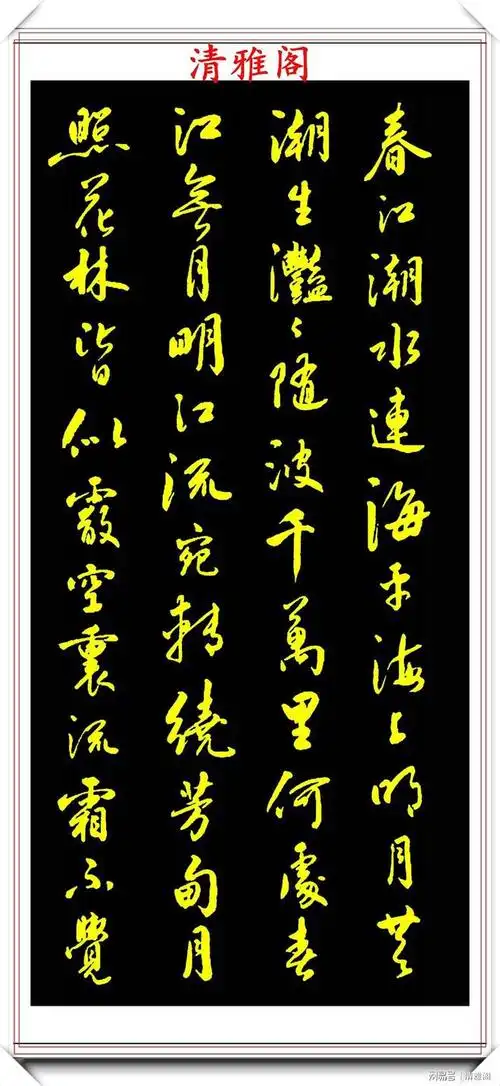 清雅阁
春江潮水連海平海上明月共
潮生灩〻隨波千萬里何處春
江無月明江流宛轉繞芳甸月
照花林皆似霰空裏流霜不覺
网易号 | 清雅阁